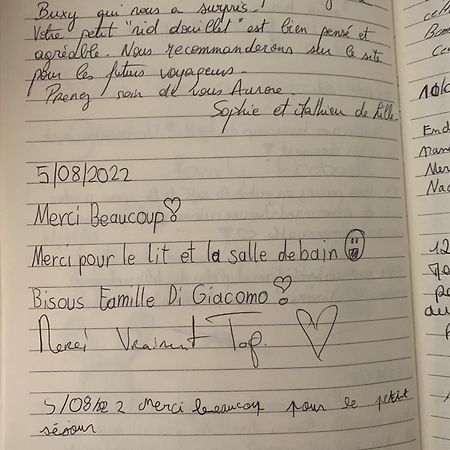 Buxy qui nous a surpris !
Votre petit "nid douillet" est bien pensé et
agréable. Nous recommanderons sur le site
pour les futurs voyageurs.
Prenez soin de vous Aurore.
Sophie et Mathieu de Lille.
5/08/2022
Merci Beaucoup!
Merci pour le lit et la salle de bain
Bisous Famille Di Giacomo!
Merci Vraiment Top.
5/08/22 Merci beaucoup pour le petit
séjour
10/0
12